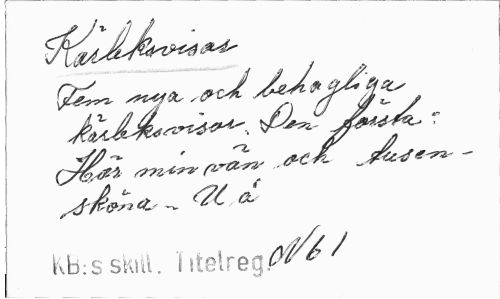 Kärleksvisor
Fem nya och behagliga
kärleksvisor. Den första:
Hör min vän och tusen-
sköna - U å
KB:s skill. Titelreg. N 61